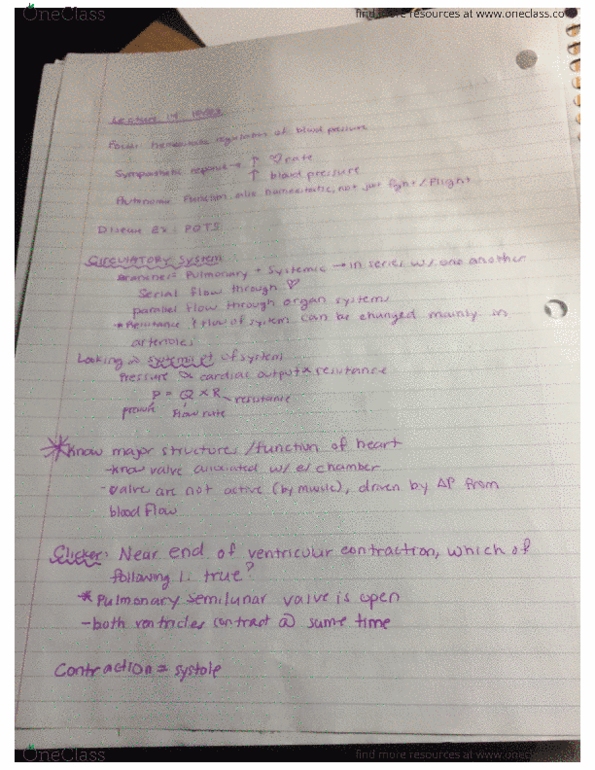 OneClass
find more resources at www.oneclass.com
Lecture 14 Notes
Focus: homeostatic regulation of blood pressure
Sympathetic response → ↑ ♡ rate
↑ blood pressure
Autonomic Function also homeostatic, not just fight/flight
Disease Ex: POTS
CIRCULATORY SYSTEM
Branches: Pulmonary + Systemic → in series w/ one another
Serial flow through ♡
parallel flow through organ systems
* Resistance & flow of systems can be changed mainly in
arterioles
Looking @ systemic pt of system
Pressure ∝ cardiac output * resistance
P = Q × R resistance
pressure flow rate
* Know major structures/function of heart
- know valve associated w/ ea/ chamber
- Valve are not active (by muscle), driven by ΔP from
blood flow
Clicker: Near end of ventricular contraction, which of
following is true?
* Pulmonary semilunar valve is open
- both ventricles contract @ same time
Contraction = systole
OneClass
find more resources at www.oneclass.com